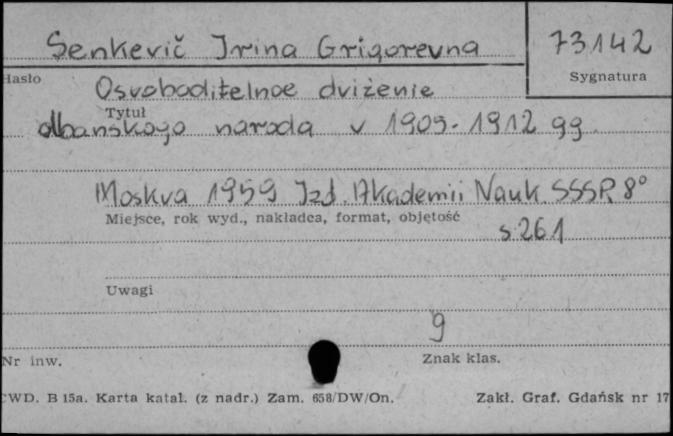 Senkevič Irina Grigorevna
73142
Hasło
Sygnatura
Osvoboditelnoe dviženie
Tytuł
albanskogo naroda v 1905-1912 gg.
Moskva 1959 Izd. Akademii Nauk SSSR 8°
Miejsce, rok wyd., nakładca, format, objętość
s. 261
Uwagi
9
Nr inw.
Znak klas.
CWD. B 15a. Karta katal. (z nadr.) Zam. 658/DW/On.
Zakł. Graf. Gdańsk nr 17